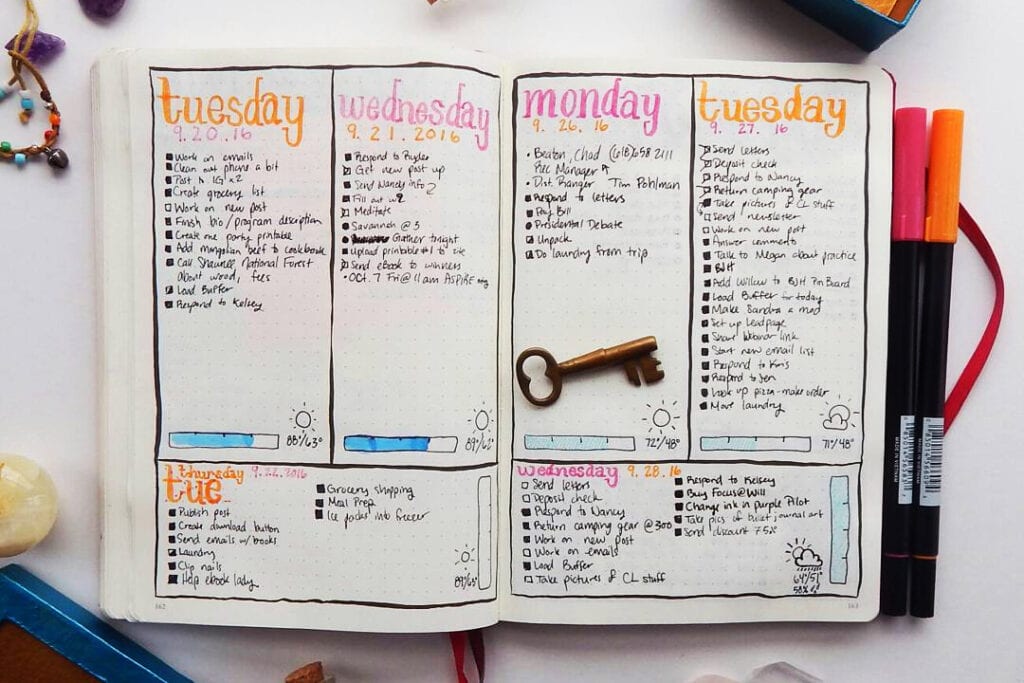 tuesday
9.20.16
Work on emails
Clean out phone a bit
Post to IG x2
Create grocery list
Work on new post
Finish bio/program description
Create me party printable
Add mongolian beef to cookbook
Call Shawnee National Forest
about wood, fees
Load Buffer
Respond to Kelsey
88°/63°
wednesday
9.21.2016
Respond to Ryder
Get new post up
Send Nancy info
Fill out w9
Meditate
Savannah @ 3
Gather tonight
Upload printable #1 to site
Send ebook to winners
Oct. 7 Fri @ 11am ASPIRE
89°/62°
thursday 9.22.2016
tue
Publish post
Create download button
Send emails w/books
Laundry
Clip nails
Help ebook lady
Grocery shopping
Meal Prep
Ice packs into freezer
162
monday
9.26.16
Beaton, Chad (618) 658 2111
Rec Manager
Dist. Ranger Tim Pohlman
Respond to letters
Pay Bill
Presidential Debate
Unpack
Do laundry from trip
72°/48°
tuesday
9.27.16
Send letters
Deposit check
Respond to Nancy
Return camping gear
Take pictures of CL stuff
Send newsletter
Work on new post
Answer comments
Talk to Megan about practice
BJH
Add Willow to BJH Pin Board
Load Buffer for today
Make Sandra a mod
Set up Leadpage
Share Webinar link
Start new email list
Respond to Kris
Respond to Jen
Look up pizza - make order
Move laundry
71°/48°
wednesday 9.28.16
Send letters
Deposit check
Respond to Nancy
Return camping gear @ 300
Work on new post
Work on emails
Load Buffer
Take pictures of CL stuff
Respond to Kelsey
Buy Focus@Will
Change ink in purple Pilot
Take pics of bullet journal art
Send discount 75%
64°/51°
58%
163